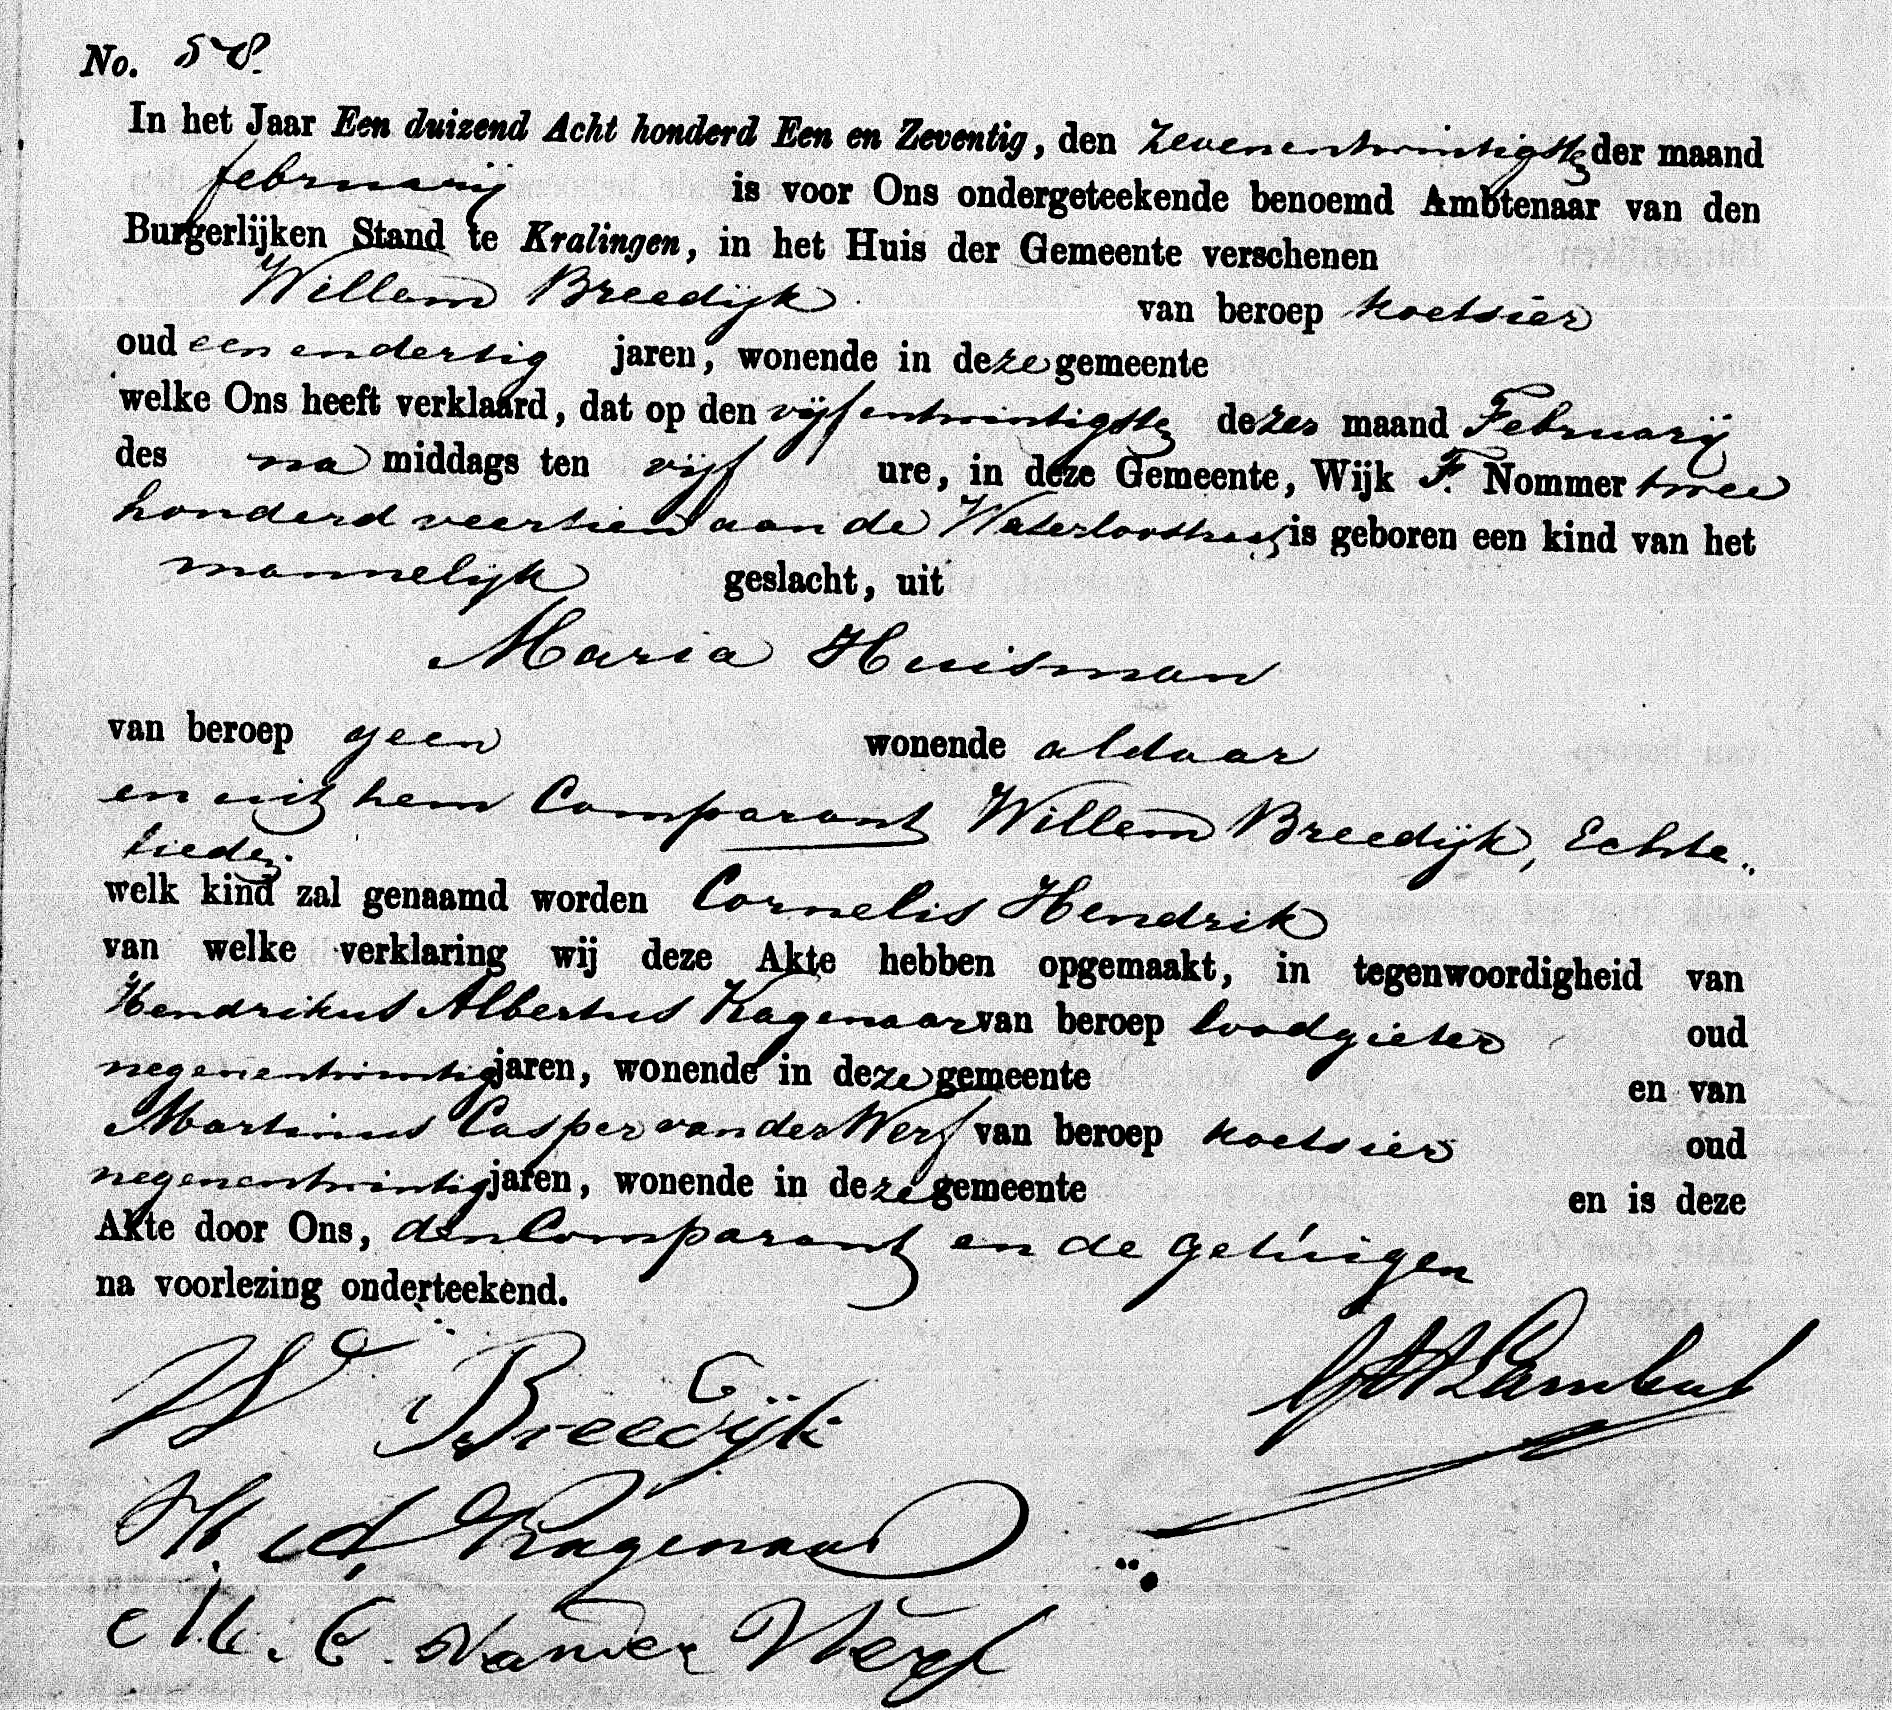 No. 58.
In het Jaar Een duizend Acht honderd Een en Zeventig, den zevenentwintigste der maand
februarij is voor Ons ondergeteekende benoemd Ambtenaar van den
Burgerlijken Stand te Kralingen, in het Huis der Gemeente verschenen
Willem Breedijk van beroep koetsier
oud een en dertig jaren, wonende in deze gemeente
welke Ons heeft verklaard, dat op den vijfentwintigste dezer maand Februarij
des na middags ten vijf ure, in deze Gemeente, Wijk F. Nommer twee
honderd veertien aan de Waterloostraat is geboren een kind van het
mannelijk geslacht, uit
Maria Huisman
van beroep geen wonende aldaar
en uit hem Comparant Willem Breedijk, Echte
lieden.
welk kind zal genaamd worden Cornelis Hendrik
van welke verklaring wij deze Akte hebben opgemaakt, in tegenwoordigheid van
Hendrikus Albertus Kagenaar van beroep loodgieter oud
negenentwintig jaren, wonende in deze gemeente en van
Martinus Casper van der Werf van beroep koetsier oud
negenentwintig jaren, wonende in deze gemeente en is deze
Akte door Ons, den Comparant en de getuigen
na voorlezing onderteekend.
W Breedijk
H. A. Kagenaar
M. C. Vander Werf